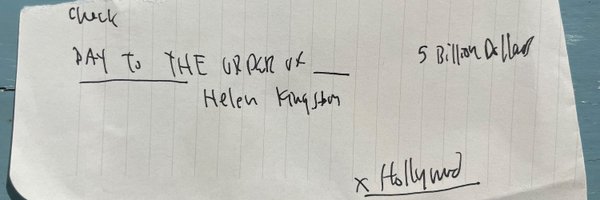 check
PAY TO THE ORDER OF ___
5 Billion Dollars
Helen Kingston
x Hollywood